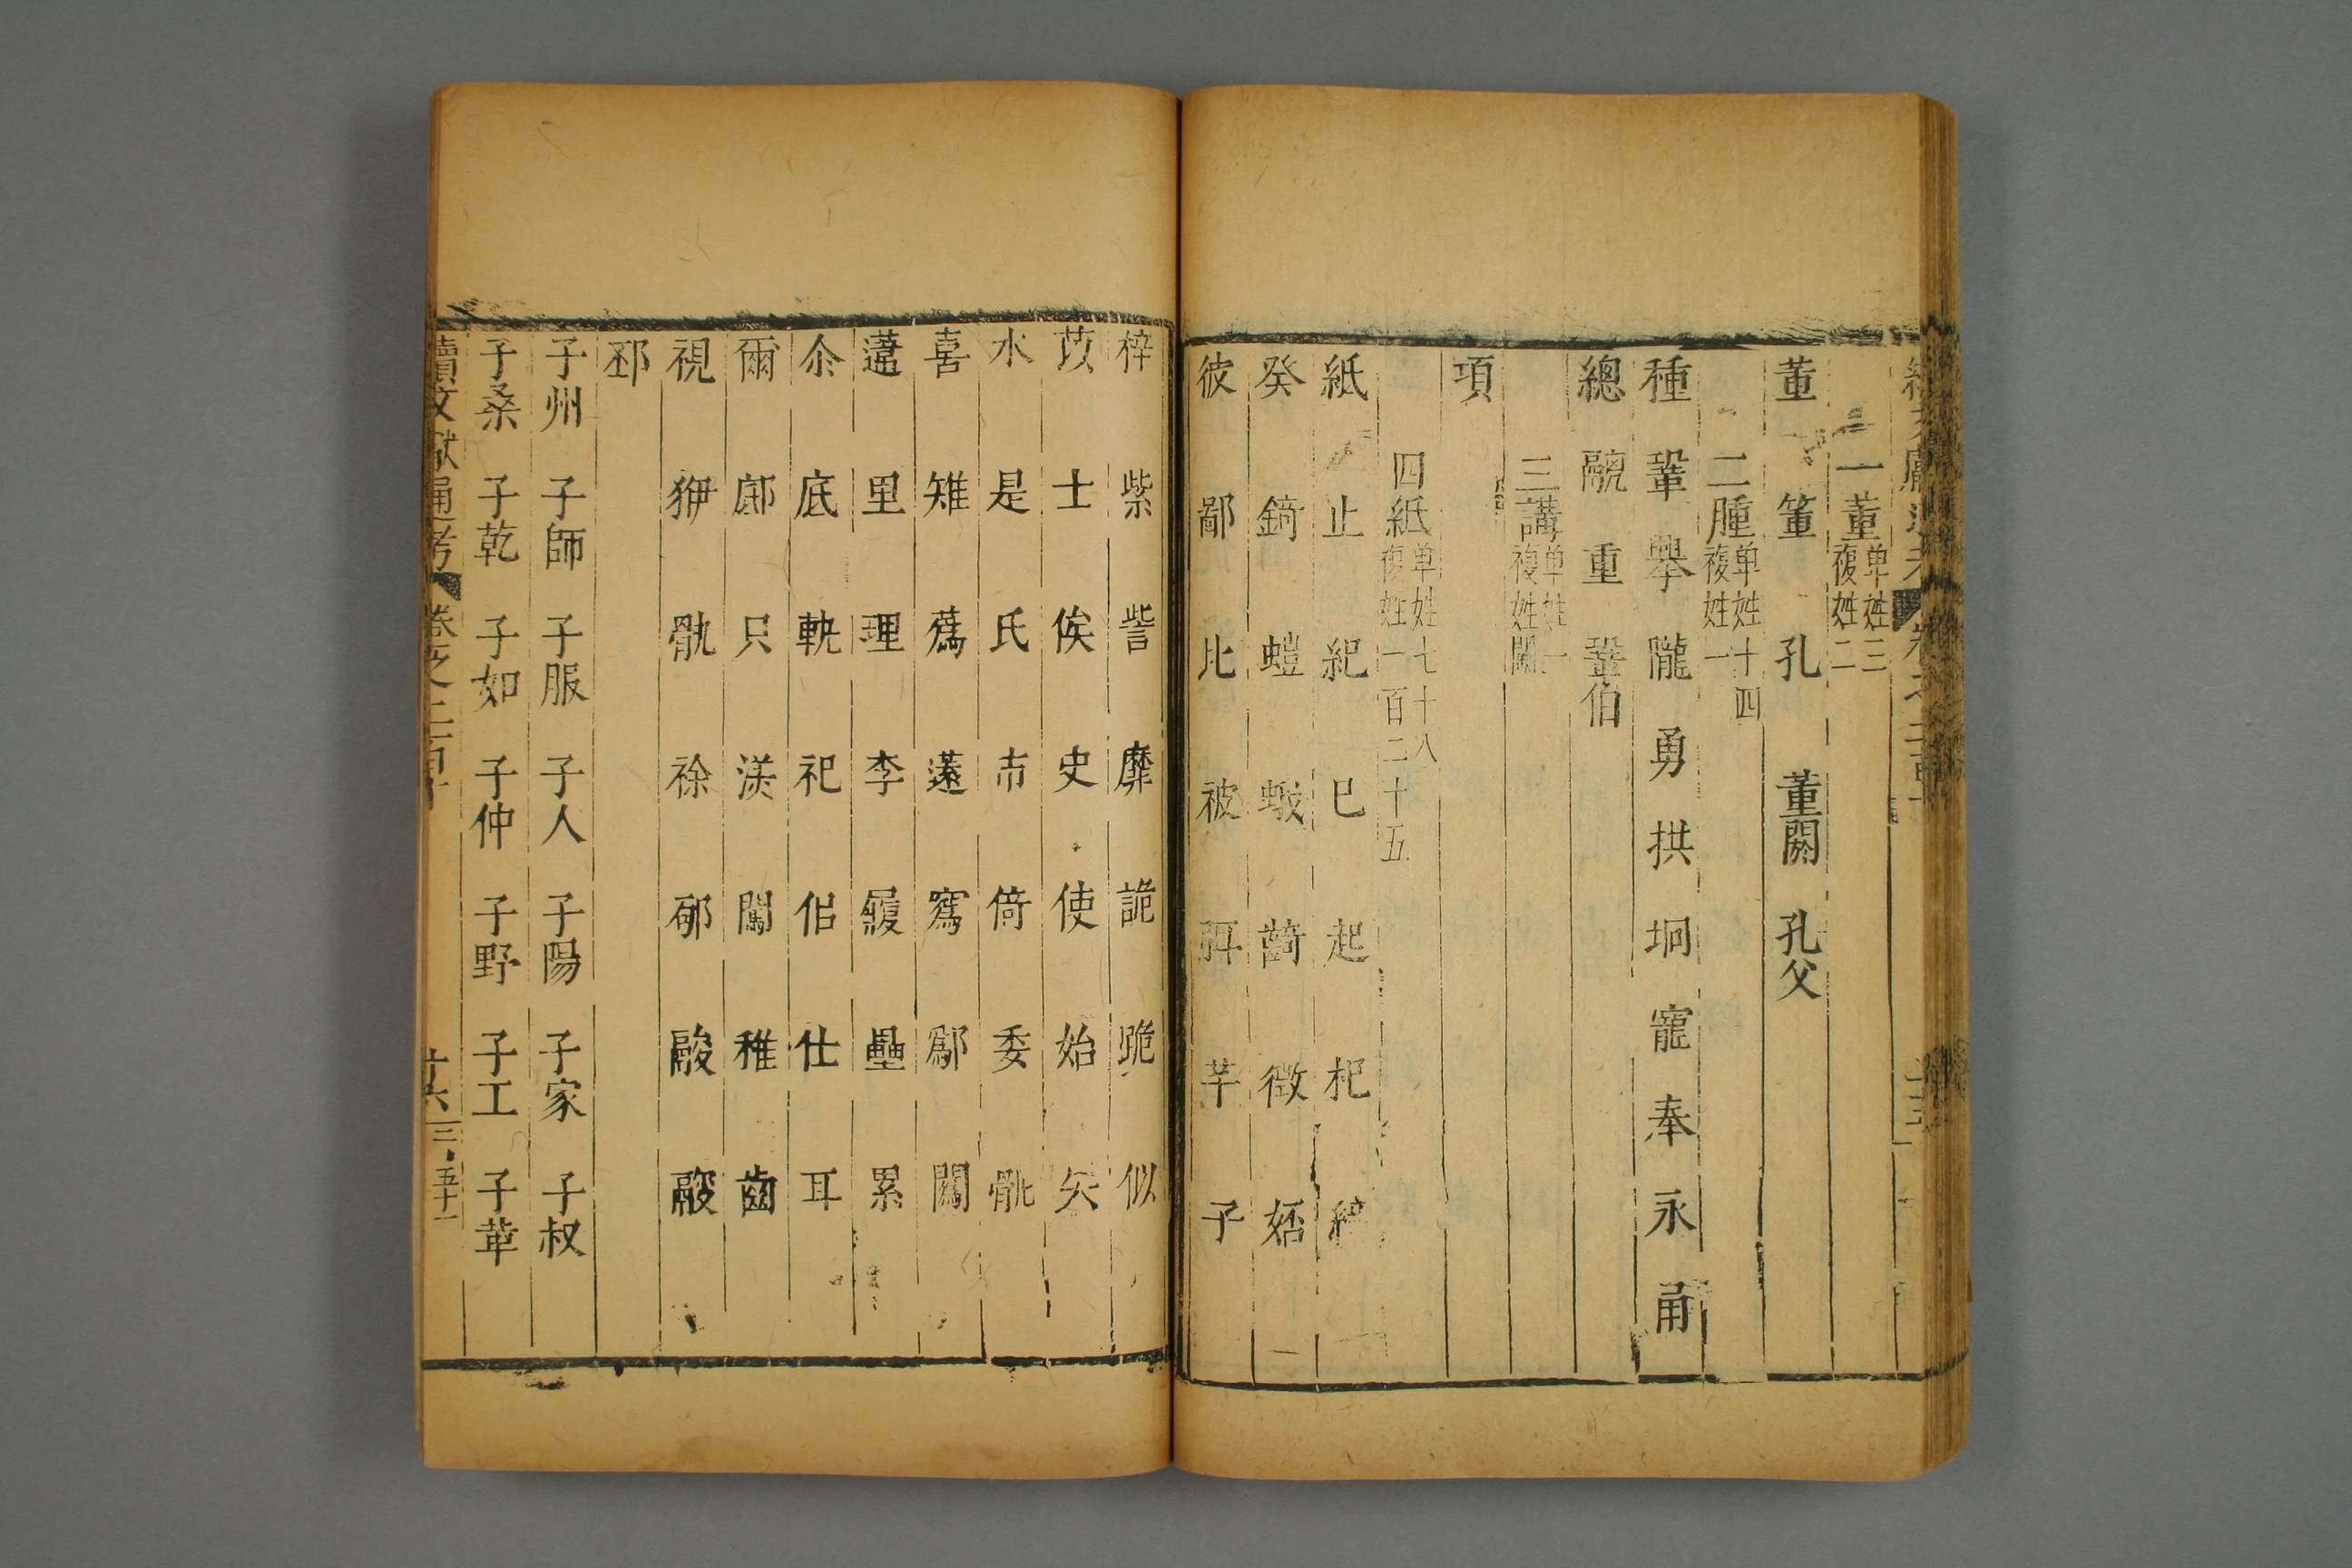 一董 单姓三 複姓二
董 董 孔 董閼 孔父
二腫 单姓十四 複姓一
種 鞏 舉 隴 勇 拱 垌 寵 奉 永 甬
總 融 重 鞏伯
三講 单姓一 複姓闕
項
四紙 单姓七十八 複姓一百二十五
紙 止 紀 巳 起 杞
癸 錡 螘 蛾 齮 徵
彼 鄙 比 被 弭 芈 子
梓 紫 訾 靡 詭 跪 似
苡 士 俟 史 使 始 矢
水 是 氏 市 倚 委 骩
喜 雉 蔿 薳 寪 鄬 闖
薳 里 理 李 履 壘 累
尒 底 軹 祀 佀 仕 耳
爾 邸 只 渼 闖 稚 齒
視 骫
邳
子州 子師 子服 子人 子陽 子家 子叔
子桑 子乾 子如 子仲 子野 子工 子華
續文獻通考 卷之二百十 十六 三五十一